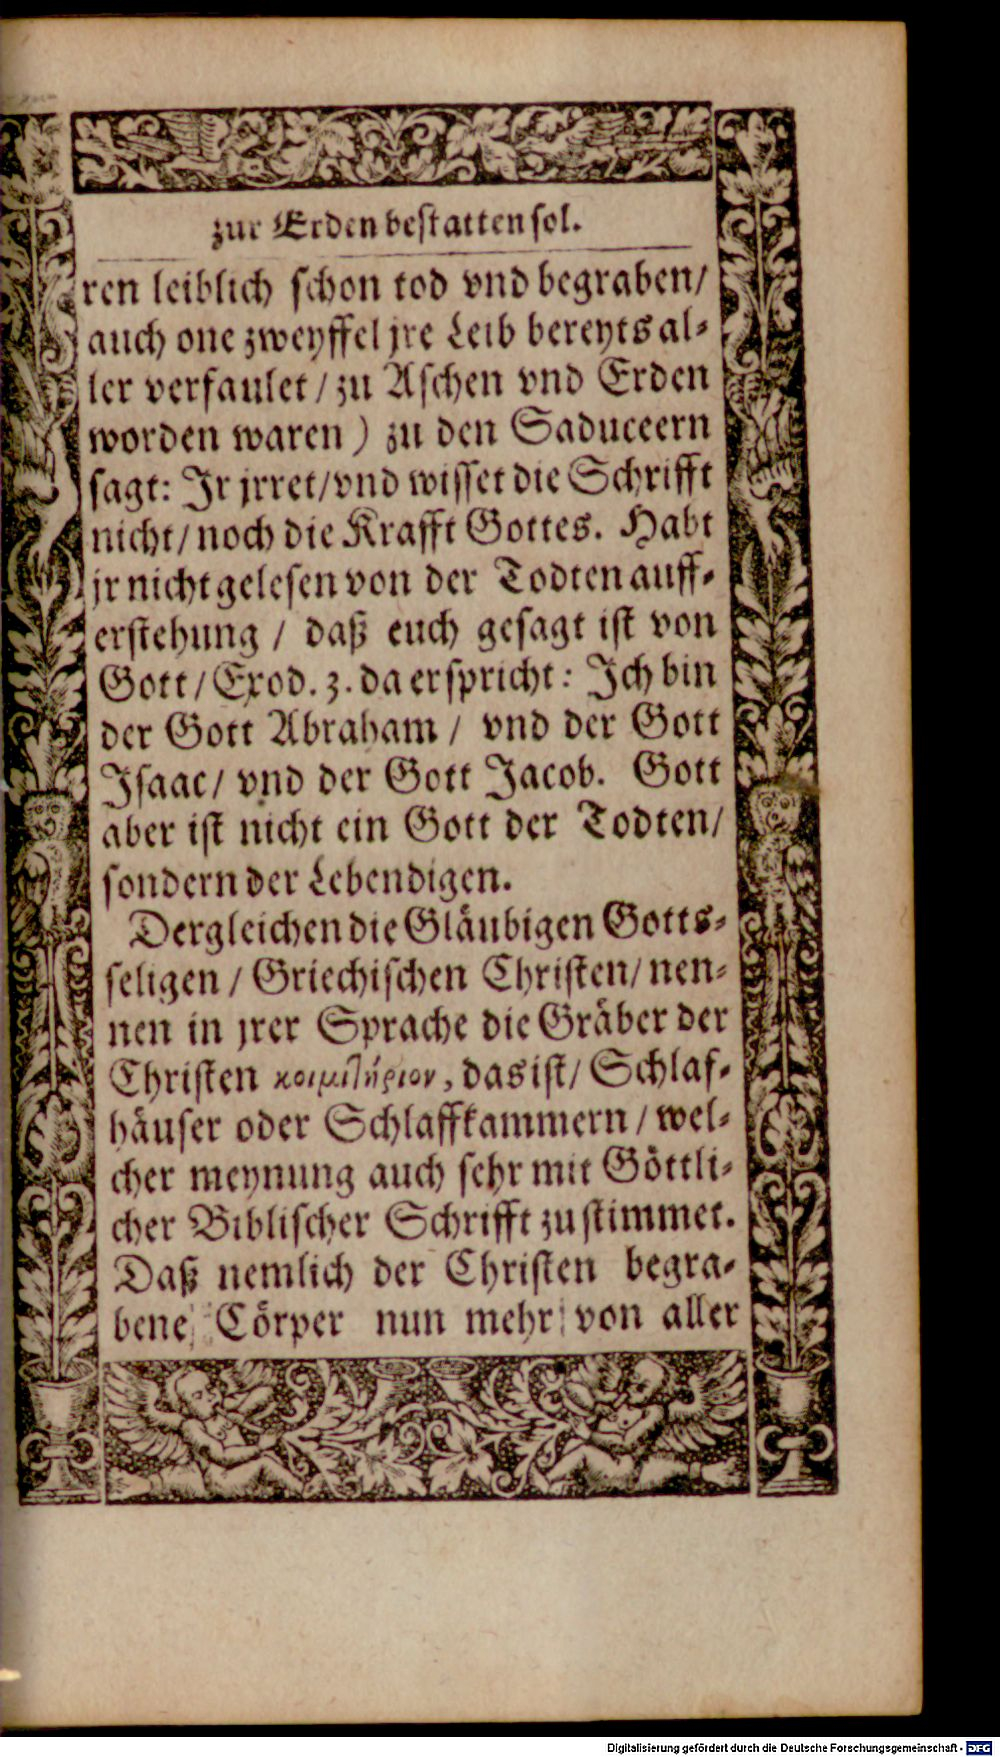 zur Erden bestatten sol.
ren leiblich schon tod vnd begraben/
auch one zweyffel jre Leib bereyts al-
ler verfaulet / zu Aschen vnd Erden
worden waren) zu den Saduceern
sagt: Jr jrret/vnd wisset die Schrifft
nicht/noch die Krafft Gottes. Habt
jr nicht gelesen von der Todten auff-
erstehung / daß euch gesagt ist von
Gott/Exod. 3. da er spricht: Jch bin
der Gott Abraham / vnd der Gott
Jsaac/ vnd der Gott Jacob. Gott
aber ist nicht ein Gott der Todten/
sondern der Lebendigen.
Dergleichen die Gläubigen Gotts-
seligen / Griechischen Christen/ nen-
nen in jrer Sprache die Gräber der
Christen κοιμιτήριον, das ist/ Schlaf-
häuser oder Schlaffkammern / wel-
cher meynung auch sehr mit Göttli-
cher Biblischer Schrifft zu stimmet.
Daß nemlich der Christen begra-
bene Cörper nun mehr von aller
Digitalisierung gefördert durch die Deutsche Forschungsgemeinschaft - DFG